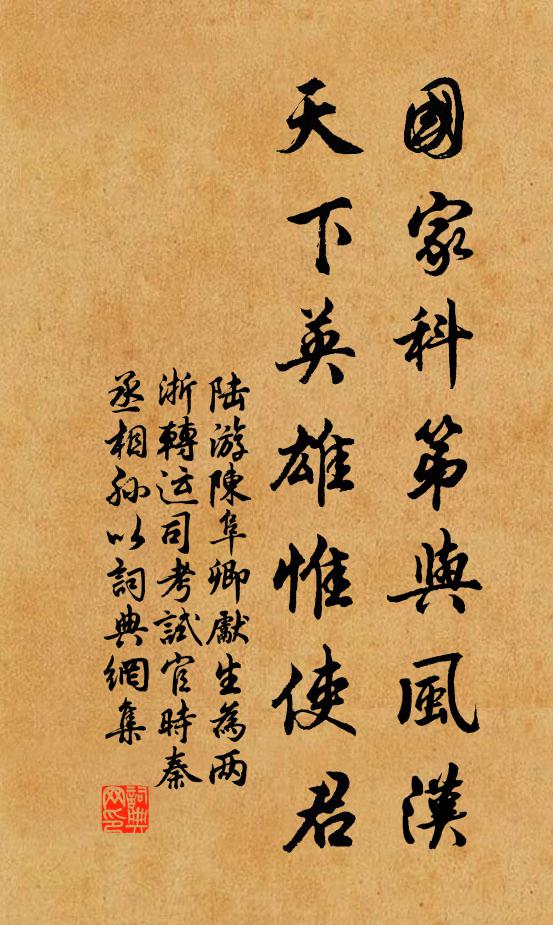 國家科第與風漢
天下英雄惟使君
陆游陳阜卿獻生為两
浙轉运司考試官時秦
丞相孙以詞典網集
詞典網印